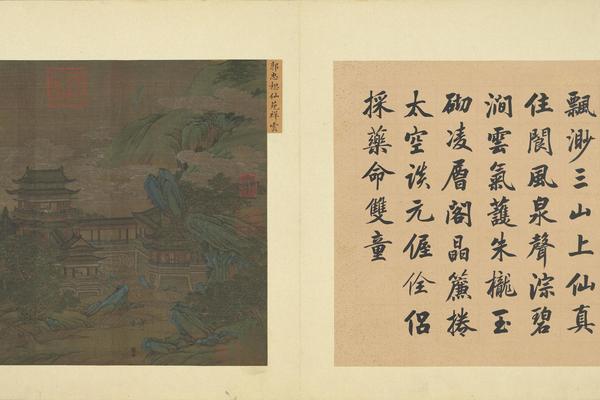 飄渺三山上仙真
住閬風泉聲淙碧
澗雲氣護朱櫳玉
砌凌層閣晶簾捲
太空談元偓佺侶
採藥命雙童
郭忠恕仙苑祥雲